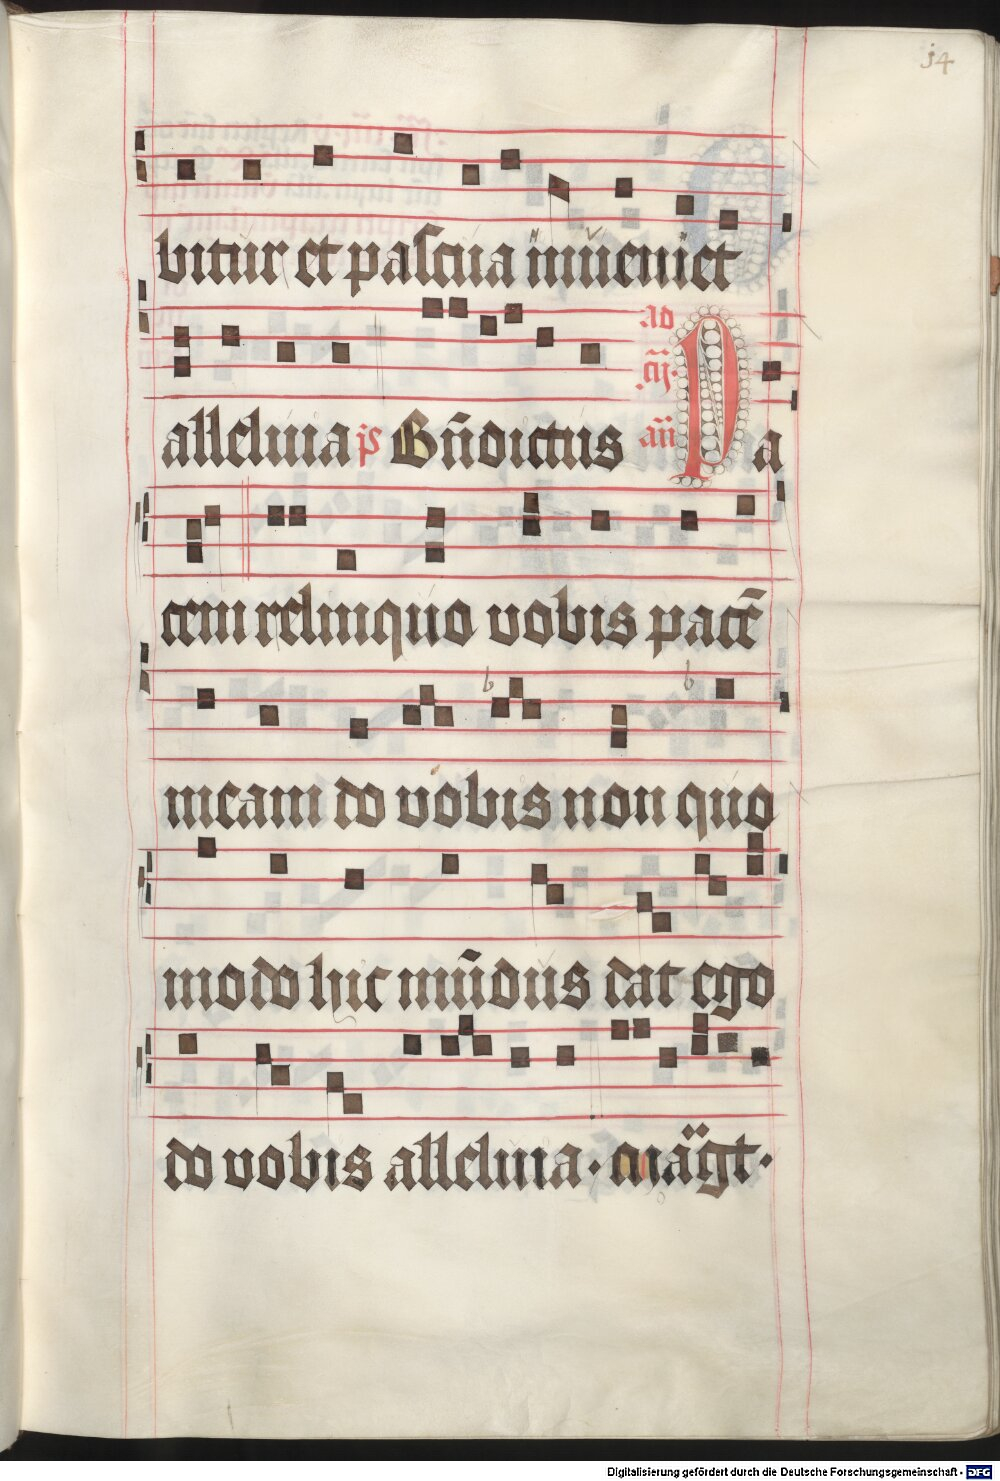 54
bitur et pascua inueniet
alleluia ps Bn̄dictus ad cā. an̄ Pa
cem relinquo vobis pacē
meam do vobis non quo
modo hic mūdus dat ego
do vobis alleluia · Mägt·
Digitalisierung gefördert durch die Deutsche Forschungsgemeinschaft - DFG